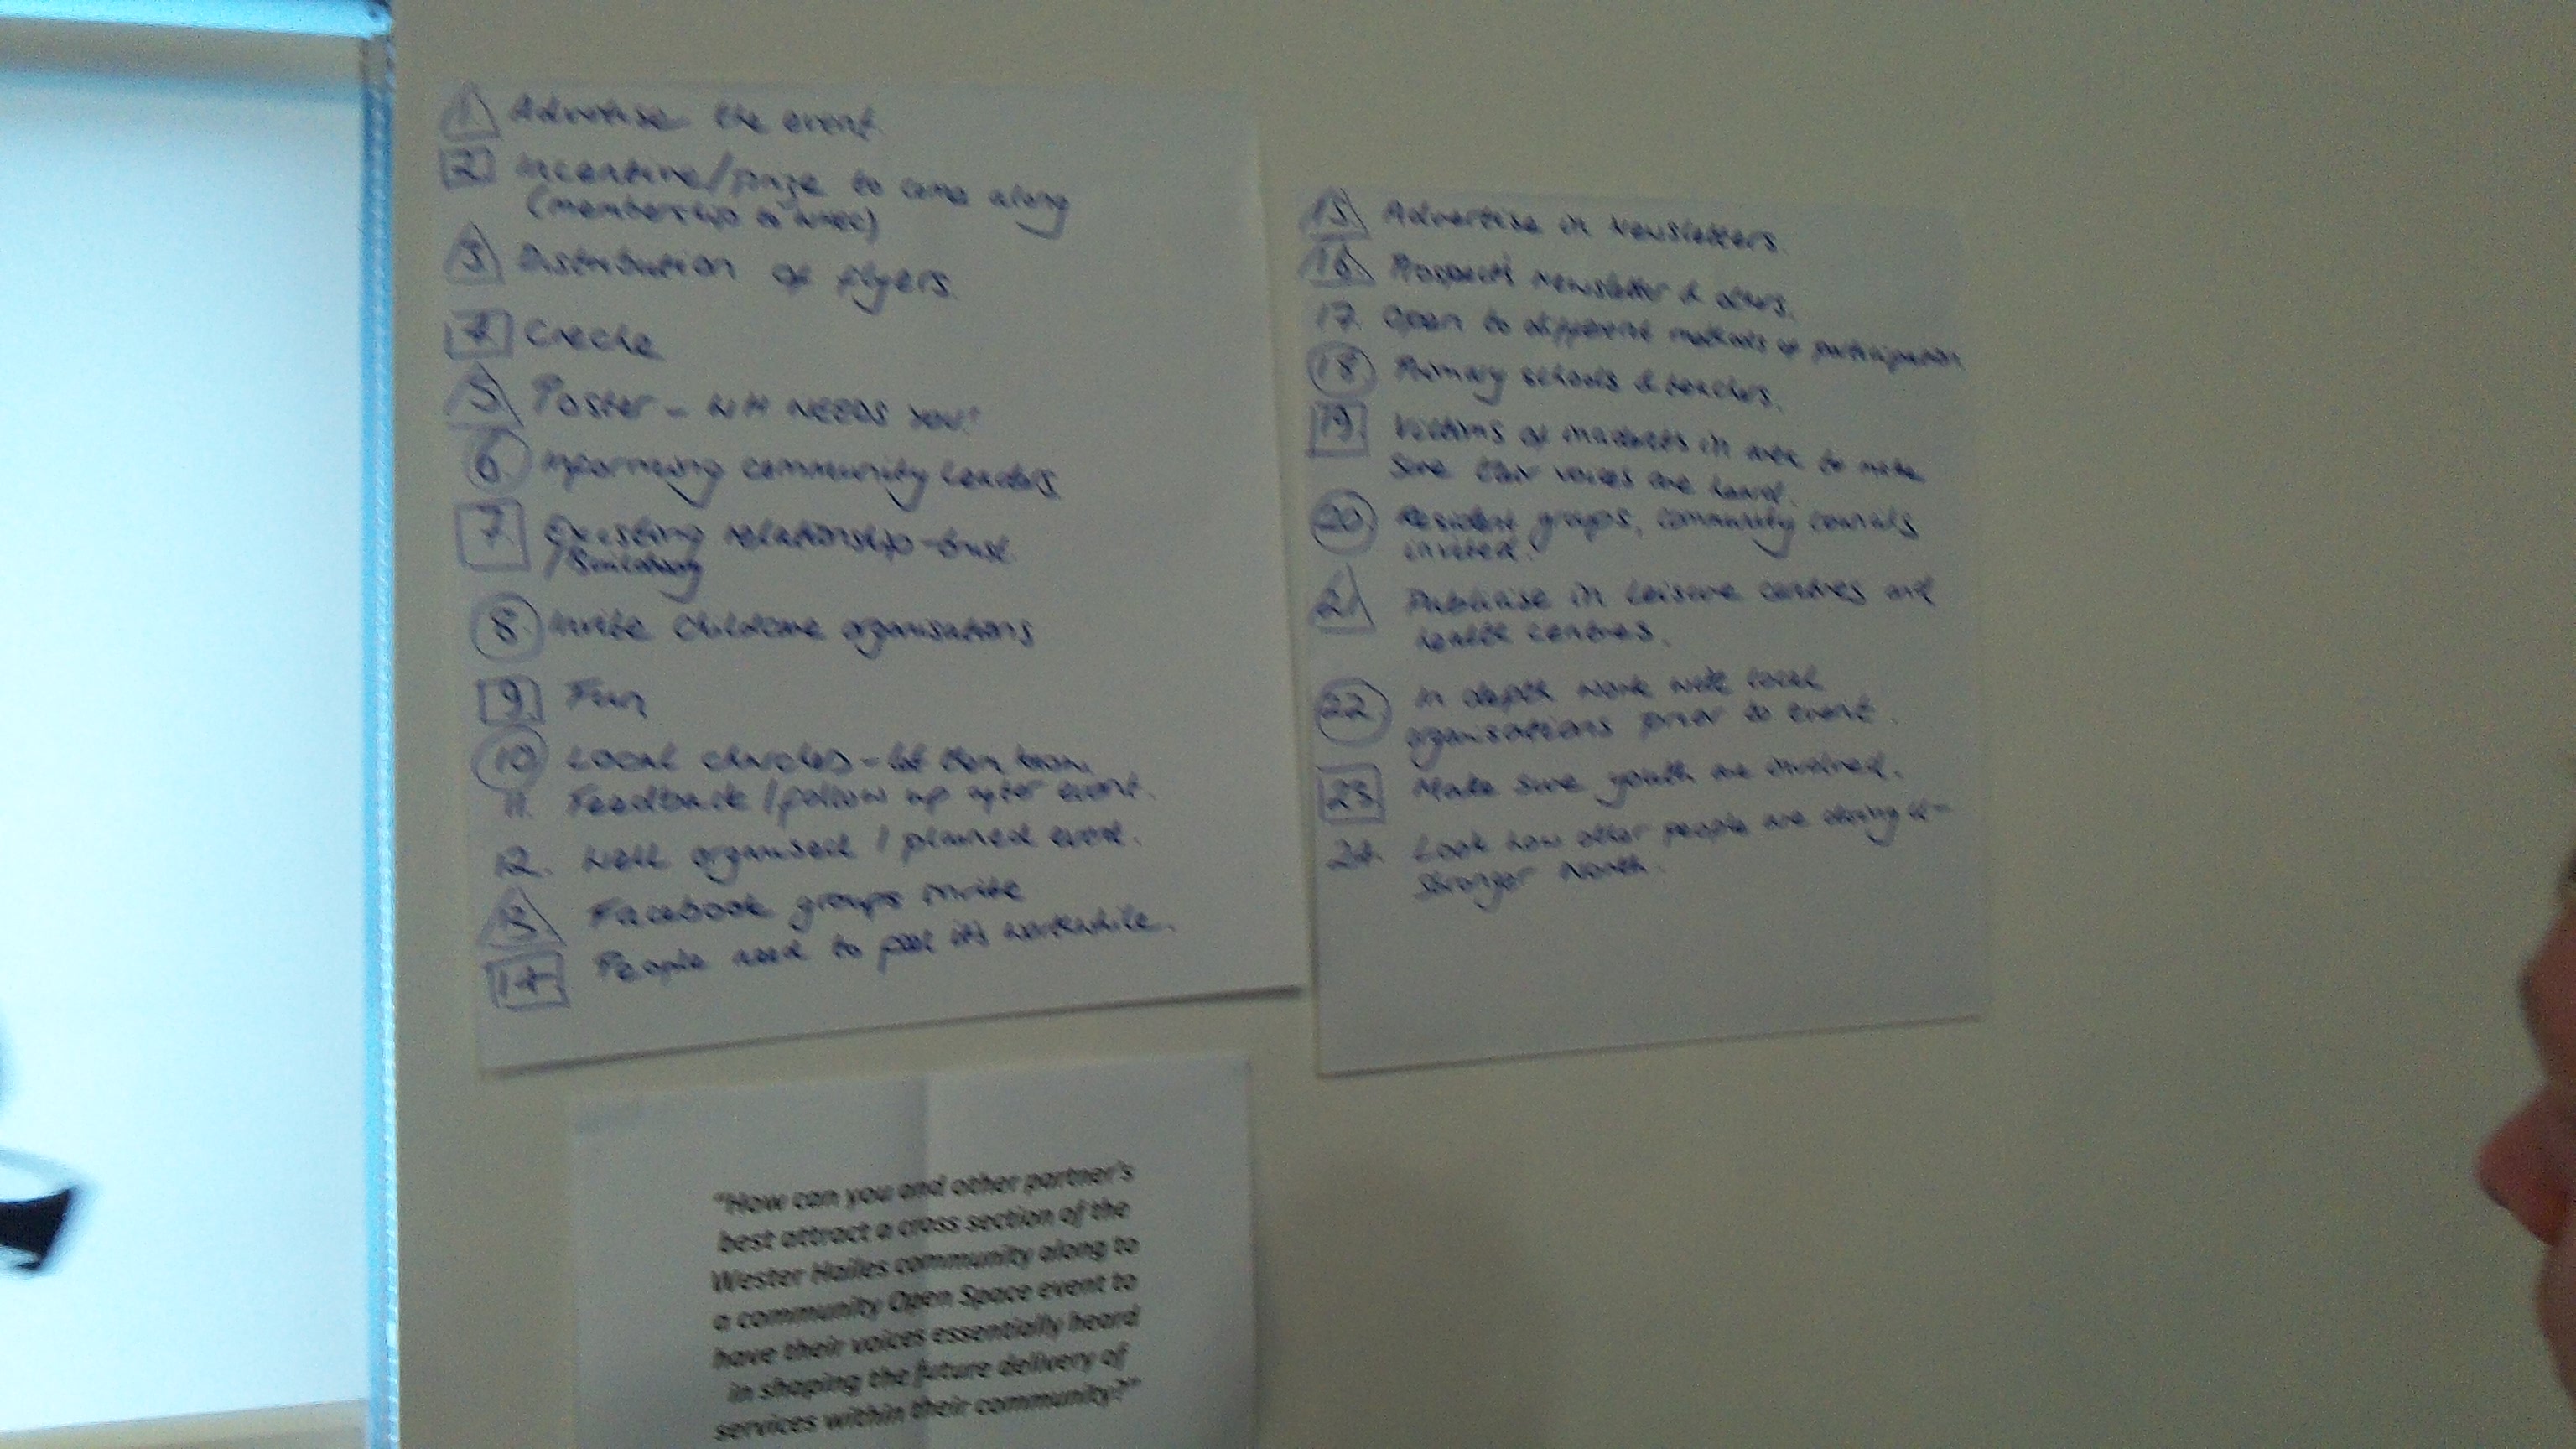 1 Advertise the event.
2 Incentive/prize to come along
(membership to WHEC)
3 Distribution of flyers.
4 Creche
5 Poster - WH NEEDS YOU!
6. Informing community leaders
7. Existing relationship - trust
/Building
8. Invite childcare organisations
9. Fun
10 Local churches - let them know.
11. Feedback / follow up after event.
12. Well organised / planned event.
13 Facebook groups invite
14. People need to feel it's worthwhile.
15. Advertise in Newsletters.
16. Prospect Newsletter & others.
17. Open to different methods of participation
18. Primary schools & teachers.
19. Victims of incidents in area to make
sure their voices are heard.
20. Resident groups, community councils
invited.
21 Publicise in leisure centres and
health centres.
22. In depth work with local
organisations prior to event.
23. Make sure youth are involved.
24. Look how other people are doing it -
Stronger North.
"How can you and other partner's
best attract a cross section of the
Wester Hailes community along to
a community Open Space event to
have their voices essentially heard
in shaping the future delivery of
services within their community?"